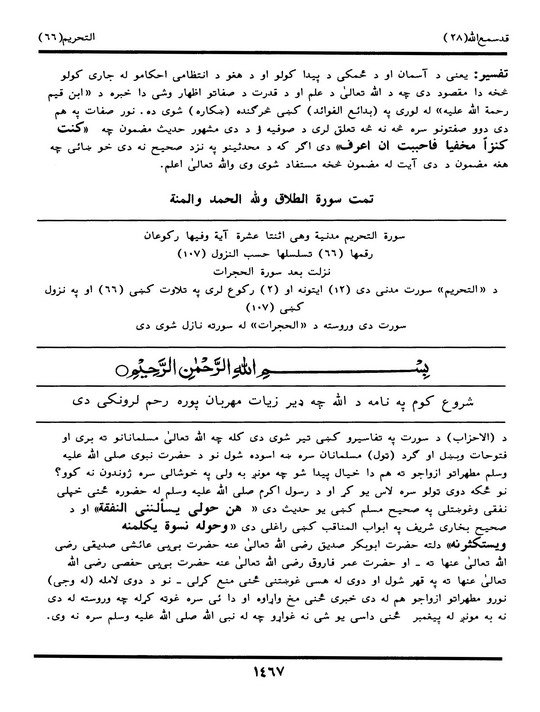 قدسمع الله (٢٨)
التحريم (٦٦)
تفسير: يعنی د آسمان او د ځمکی د پيدا کولو او د هغو د انتظامی احکامو له جاری کولو
څخه دا مقصود دی چه د الله تعالیٰ د علم او د قدرت د صفاتو اظهار وشی دا خبره د «ابن قيم
رحمة الله عليه» له لوری په (بدائع الفوائد) کښی څرګنده (ښکاره) شوی ده. نور صفات په هم
دی دوو صفتونو سره څه نه څه تعلق لری د صوفيه ؤ د دی مشهور حديث مضمون چه «کنت
کنزاً مخفيا فاحببت ان اعرف» دی اګر که د محدثينو په نزد صحيح نه دی خو ښائی چه
هغه مضمون د دی آيت له مضمون څخه مستفاد شوی وی والله تعالیٰ اعلم.
تمت سورة الطلاق ولله الحمد والمنة
سورة التحريم مدنية وهی اثنتا عشرة آية وفيها رکوعان
رقمها (٦٦) تسلسلها حسب النزول (١٠٧)
نزلت بعد سورة الحجرات
د «التحريم» سورت مدنی دی (١٢) ايتونه او (٢) رکوع لری په تلاوت کښی (٦٦) او په نزول
کښی (١٠٧)
سورت دی وروسته د «الحجرات» له سورته نازل شوی دی
بِسْمِ اللهِ الرَّحْمٰنِ الرَّحِيْمِ
شروع کوم په نامه د الله چه ډير زيات مهربان پوره رحم لرونکی دی
د (الاحزاب) د سورت په تفاسيرو کښی تير شوی دی کله چه الله تعالیٰ مسلمانانو ته بری او
فتوحات وبښل او ګرد (تول) مسلمانان سره ښه اسوده شول نو د حضرت نبوی صلی الله عليه
وسلم مطهراتو ازواجو ته هم دا خيال پيدا شو چه مونږ به ولی په خوشالی سره ژوندون نه کوو؟
نو ځکه دوی تولو سره لاس يو کړ او د رسول اکرم صلی الله عليه وسلم له حضوره ځنی خپلی
نفقی وغوښتلی په صحيح مسلم کښی يو حديث دی « هن حولی يسألننی النفقة» او د
صحيح بخاری شريف په ابواب المناقب کښی راغلی دی «وحوله نسوة يکلمنه
ويستکثرنه» دلته حضرت ابوبکر صديق رضی الله تعالیٰ عنه حضرت بی‌بی عائشی صديقی رضی
الله تعالیٰ عنها ته ـ او حضرت عمر فاروق رضی الله تعالیٰ عنه حضرت بی‌بی حفصی رضی الله
تعالیٰ عنها ته په قهر شول او دوی له هسی غوښتنی ځنی منع کړلی ـ نو د دوی لامله (له وجی)
نورو مطهراتو ازواجو هم له دی خبری ځنی مخ واړاوه او دا ئی سره غوته کړله چه وروسته له دی
نه به مونږ له پيغمبر ځنی داسی يو شی نه غواړو چه له نبی الله صلی الله عليه وسلم سره نه وی.
١٤٦٧